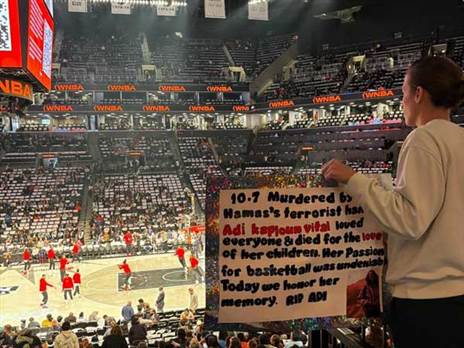 WNBA
WNBA WNBA WNBA WNBA WNBA
WNBA WNBA WNBA WNBA WNBA WNBA
10.7 Murdered by
Hamas's terrorist
Adi kaploun vital loved
everyone & died for the love
of her children. Her Passion
for basketball was undenia
Today we honor her
memory. RIP ADI